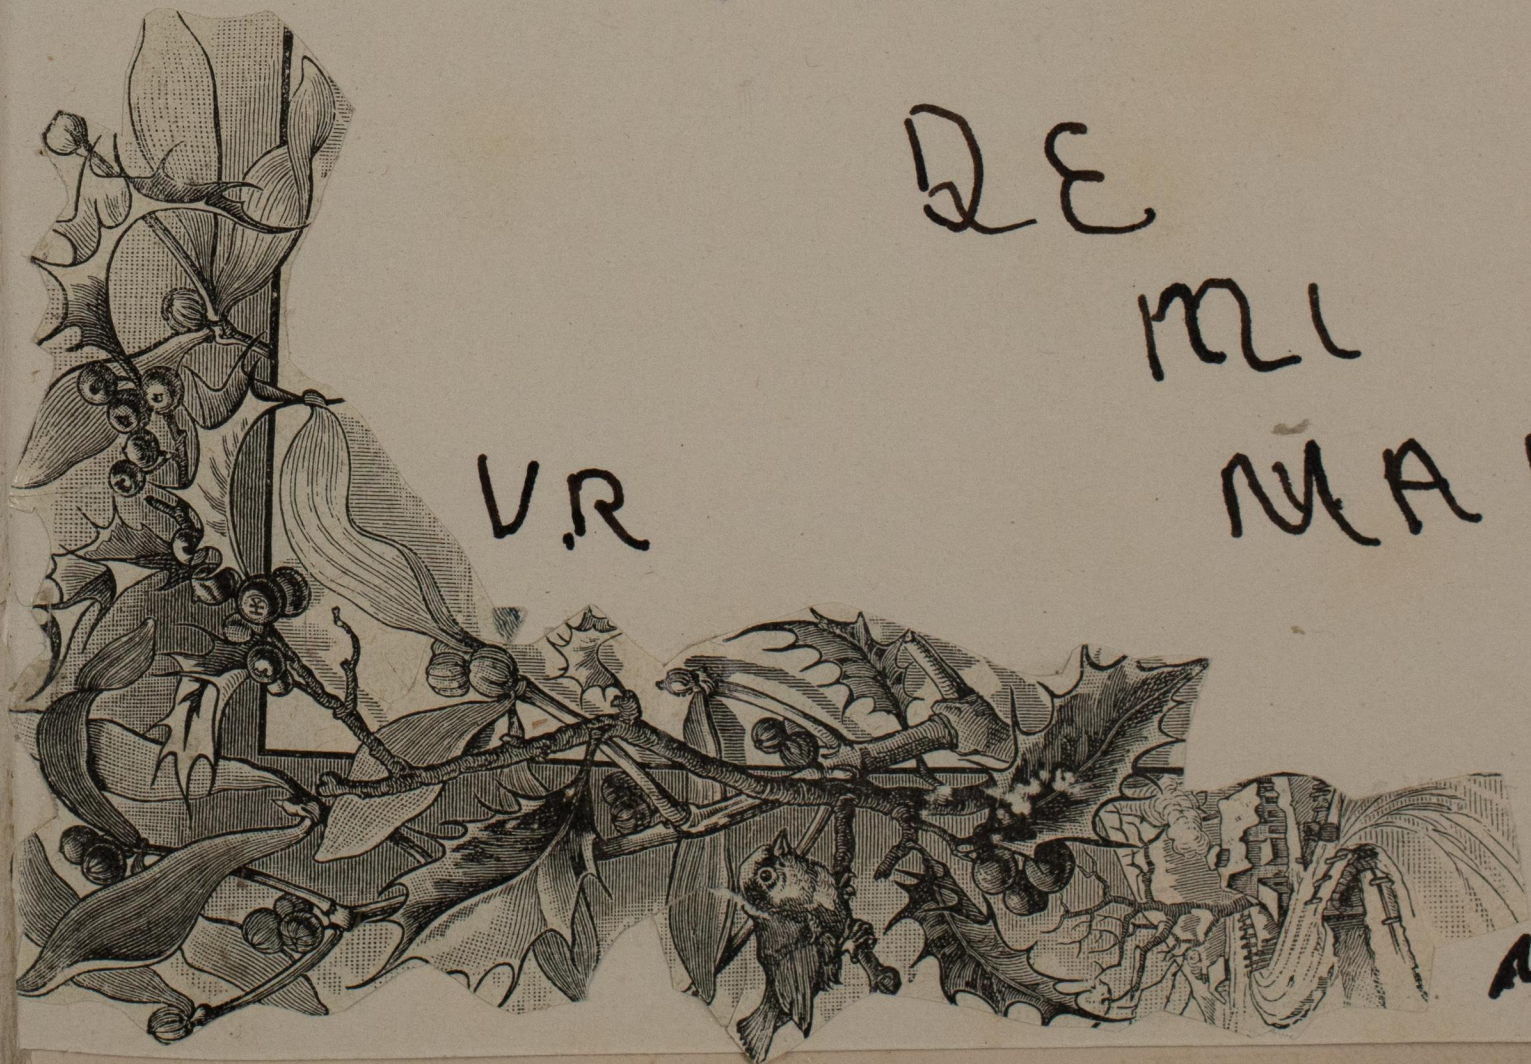 DE
MI
V.R
MA